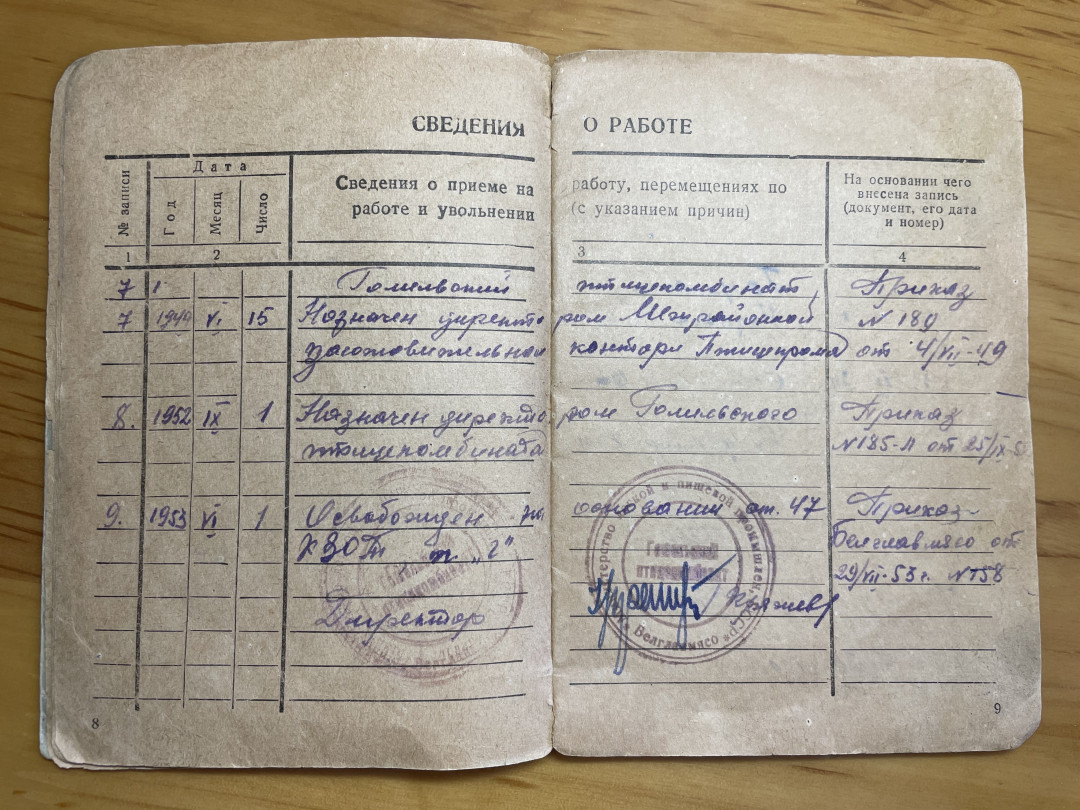 СВЕДЕНИЯ О РАБОТЕ
№ записи
Дата
Год
Месяц
Число
Сведения о приеме на работу, перемещениях по
работе и увольнении (с указанием причин)
На основании чего
внесена запись
(документ, его дата
и номер)
1 2 3 4
Гомельский птицекомбинат Приказ
7 1949 VI 15 Назначен директором Межрайонной № 189
заготовительной конторы Птицепрома от 4/VII-49
8. 1952 IX 1 Назначен директором Гомельского Приказ
птицекомбината №185-Л от 25/IX-5
9. 1953 VI 1 Освобожден на основании ст. 47 Приказ
КЗОТ п. „Г" Белглавмясо от
29/VII-53г. №758
Директор
Гомельский
птицекомбинат
Белглавмясо
8
9